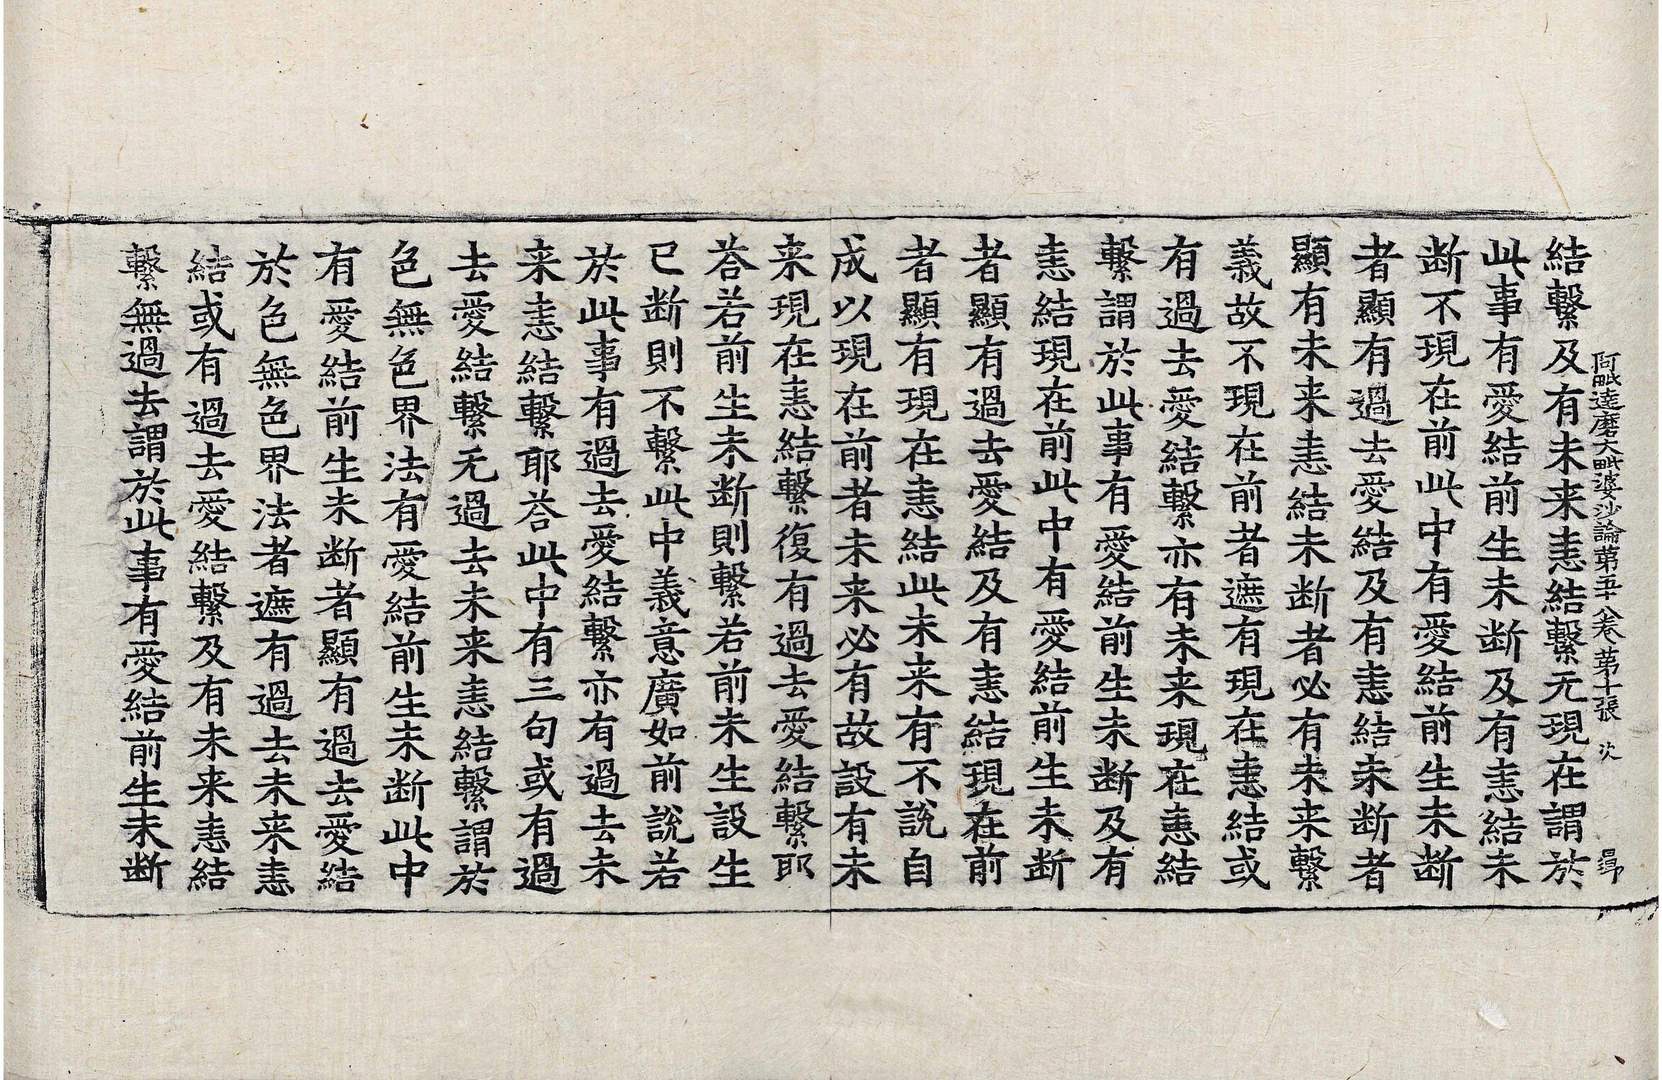 阿毗達磨大毗婆沙論第五十八卷 第十張 次 昻
結繫及有未来恚結繫无現在謂於
此事有愛結前生未断及有恚結未
断不現在前此中有愛結前生未断
者顯有過去愛結及有恚結未断者
顯有未来恚結未断者必有未来繫
義故不現在前者遮有現在恚結或
有過去愛結繫亦有未来現在恚結
繫謂於此事有愛結前生未断及有
恚結現在前此中有愛結前生未断
者顯有過去愛結及有恚結現在前
者顯有現在恚結此未来有不說自
成以現在前者未来必有故設有未
来現在恚結繫復有過去愛結繫耶
荅若前生未断則繫若前未生設生
已断則不繫此中義意廣如前說若
於此事有過去愛結繫亦有過去未
来恚結繫耶荅此中有三句或有過
去愛結繫无過去未来恚結繫謂於
色無色界法有愛結前生未断此中
有愛結前生未断者顯有過去愛結
於色無色界法者遮有過去未来恚
結或有過去愛結繫及有未来恚結
繫無過去謂於此事有愛結前生未断